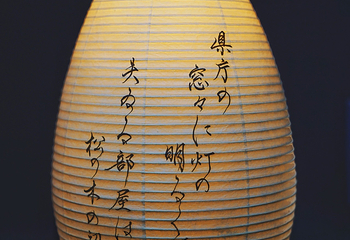 県庁の
窓々に灯の
明るく
夫ゐる部屋は
松の木の